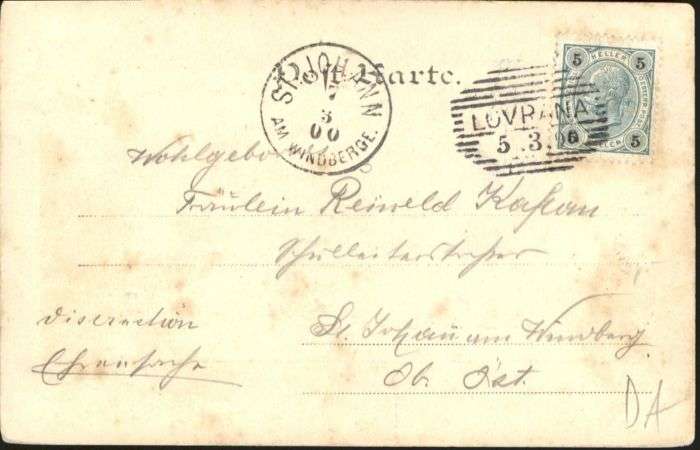 Post Karte.
ST. JOHANN
7
3
00
AM WINDBERGE.
LOVRANA
5.3.00
5 HELLER 5
5 HELLER 5
Wohlgeboren
Fräulein Reineld Kaftan
Schulleiterstochter
St. Johann am Wimberg
Ob. Öst.
Discretion
Ehrensache
DA